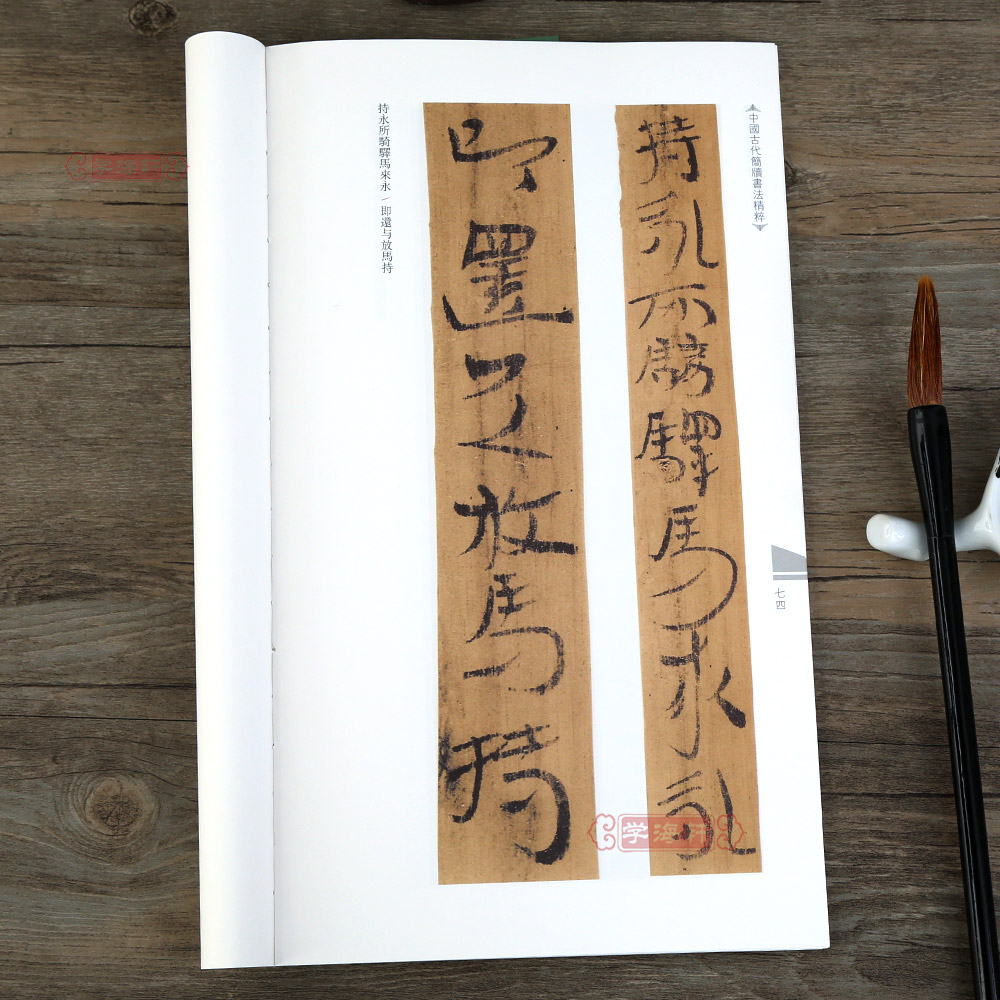 中國古代簡牘書法精粹
七四
持永所騎驛馬來永
即還与放馬持
持永所騎驛馬來永/即還与放馬持
学海轩
学海轩